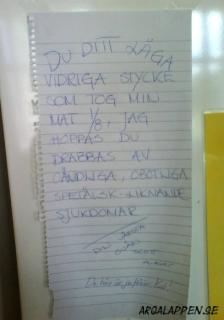 DU DITT LÅGA
VIDRIGA STYCKE
SOM TOG MIN
MAT 1/8, JAG
HOPPAS DU
DRABBAS AV
OÄNDLIGA, OBOTLIGA
SPETÄLSK-LIKNANDE
SJUKDOMAR
DIN
ARGALAPPEN.SE